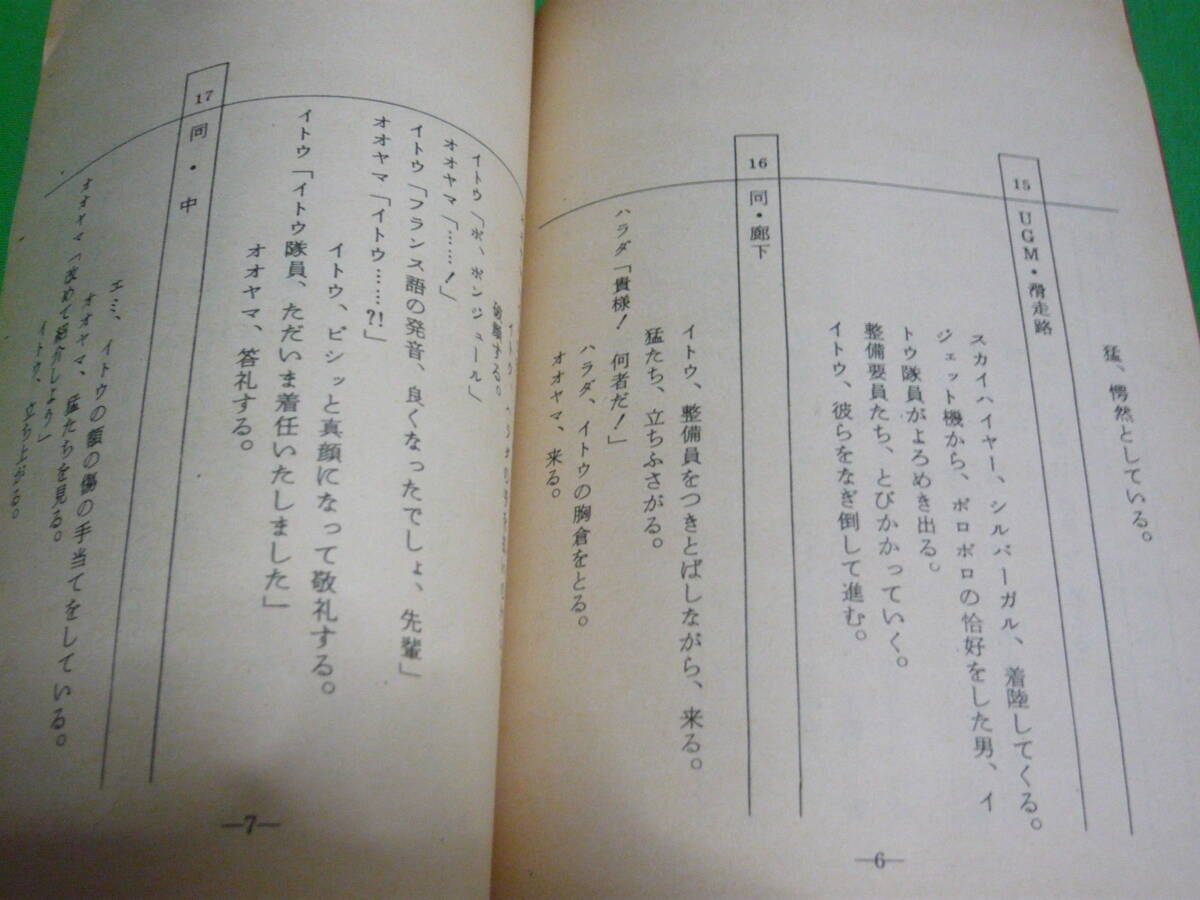 猛、愕然としている。
15 UGM・滑走路
スカイハイヤー、シルバーガル、着陸してくる。
ジェット機から、ボロボロの恰好をした男、イ
トウ隊員がよろめき出る。
整備要員たち、とびかかっていく。
イトウ、彼らをなぎ倒して進む。
16 同・廊下
イトウ、整備員をつきとばしながら、来る。
猛たち、立ちふさがる。
ハラダ「貴様！何者だ！」
ハラダ、イトウの胸倉をとる。
オオヤマ、来る。
—6—
破顔する。
イトウ「ボ、ボンジュール」
オオヤマ「……！」
イトウ「フランス語の発音、良くなったでしょ、先輩」
オオヤマ「イトウ……?!」
イトウ、ビシッと真顔になって敬礼する。
イトウ「イトウ隊員、ただいま着任いたしました」
オオヤマ、答礼する。
17 同・中
エミ、イトウの顔の傷の手当てをしている。
オオヤマ、猛たちを見る。
オオヤマ「改めて紹介しよう」
イトウ、立ち上がる。
—7—